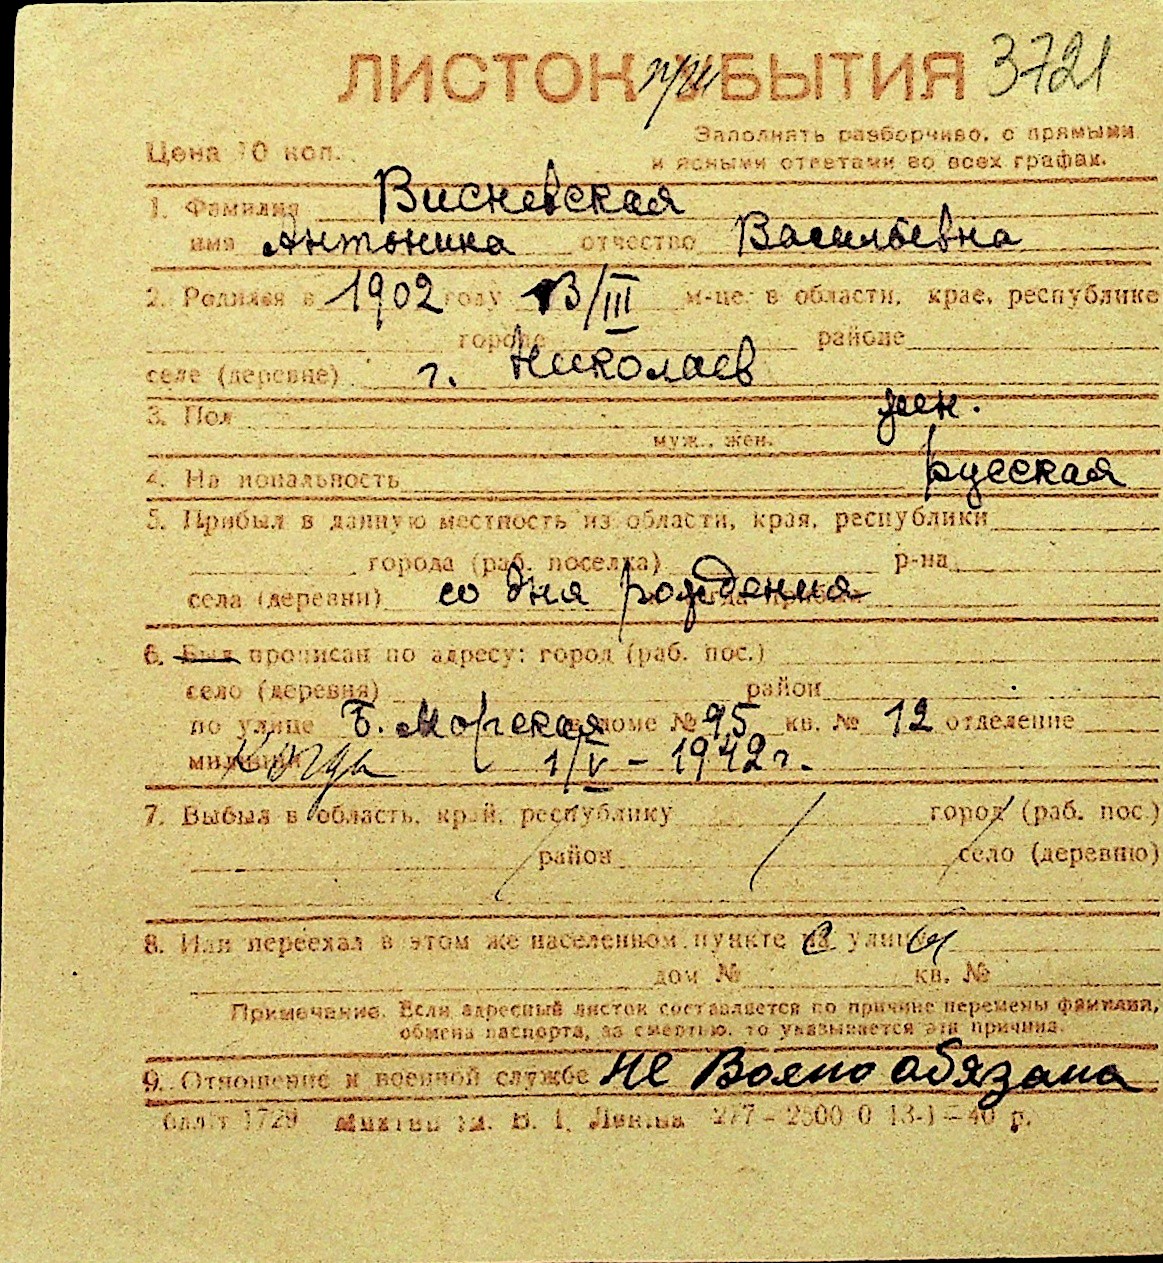 ЛИСТОК при УБЫТИЯ 3721
Цена 10 коп.
Заполнять разборчиво, с прямыми
и ясными ответами во всех графах.
1. Фамилия Висневская
имя Антонина отчество Васильевна
2. Родился в 1902 году 13/III м-це в области, крае, республике
городе районе
селе (деревне) г. Николаев
3. Пол жен.
муж., жен.
4. Национальность русская
5. Прибыл в данную местность из области, края, республики
города (раб. поселка) р-на
села (деревни) со дня рождения
6. Был прописан по адресу: город (раб. пос.)
село (деревня) район
по улице Б. Морская в доме № 95 кв. № 12 отделение
милиции Когда 1/V – 1942 г.
7. Выбыл в область, край, республику город (раб. пос.)
район село (деревню)
8. Или переехал в этом же населенном пункте на улицу
дом № кв. №
Примечание. Если адресный листок составляется по причине перемены фамилии,
обмена паспорта, за смертью, то указывается эта причина.
9. Отношение к военной службе не Военно обязана
1729 им. В. І. Леніна 277 – 2500 0 13-І – 40 р.